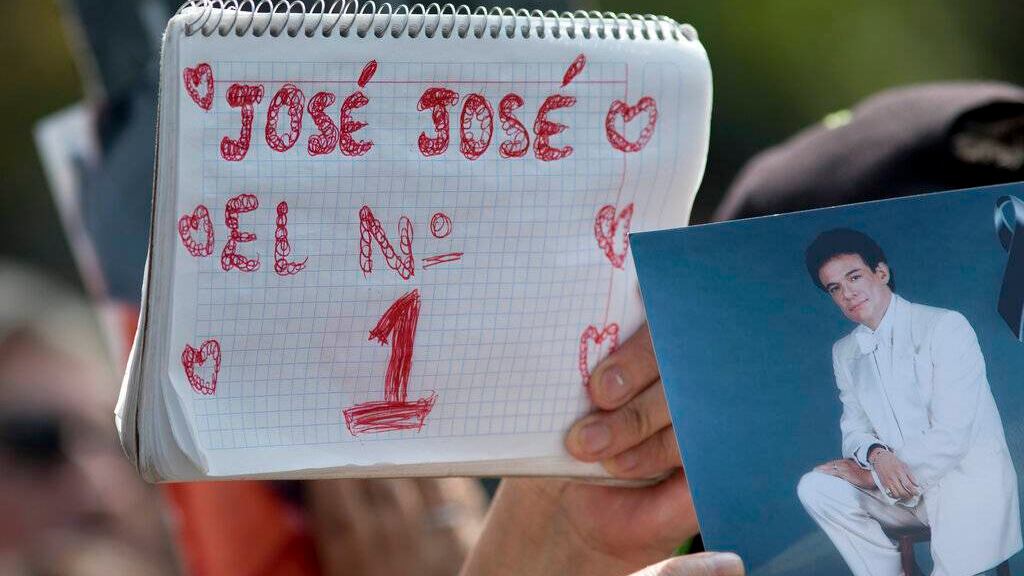 JOSÉ JOSÉ
EL Nº
1